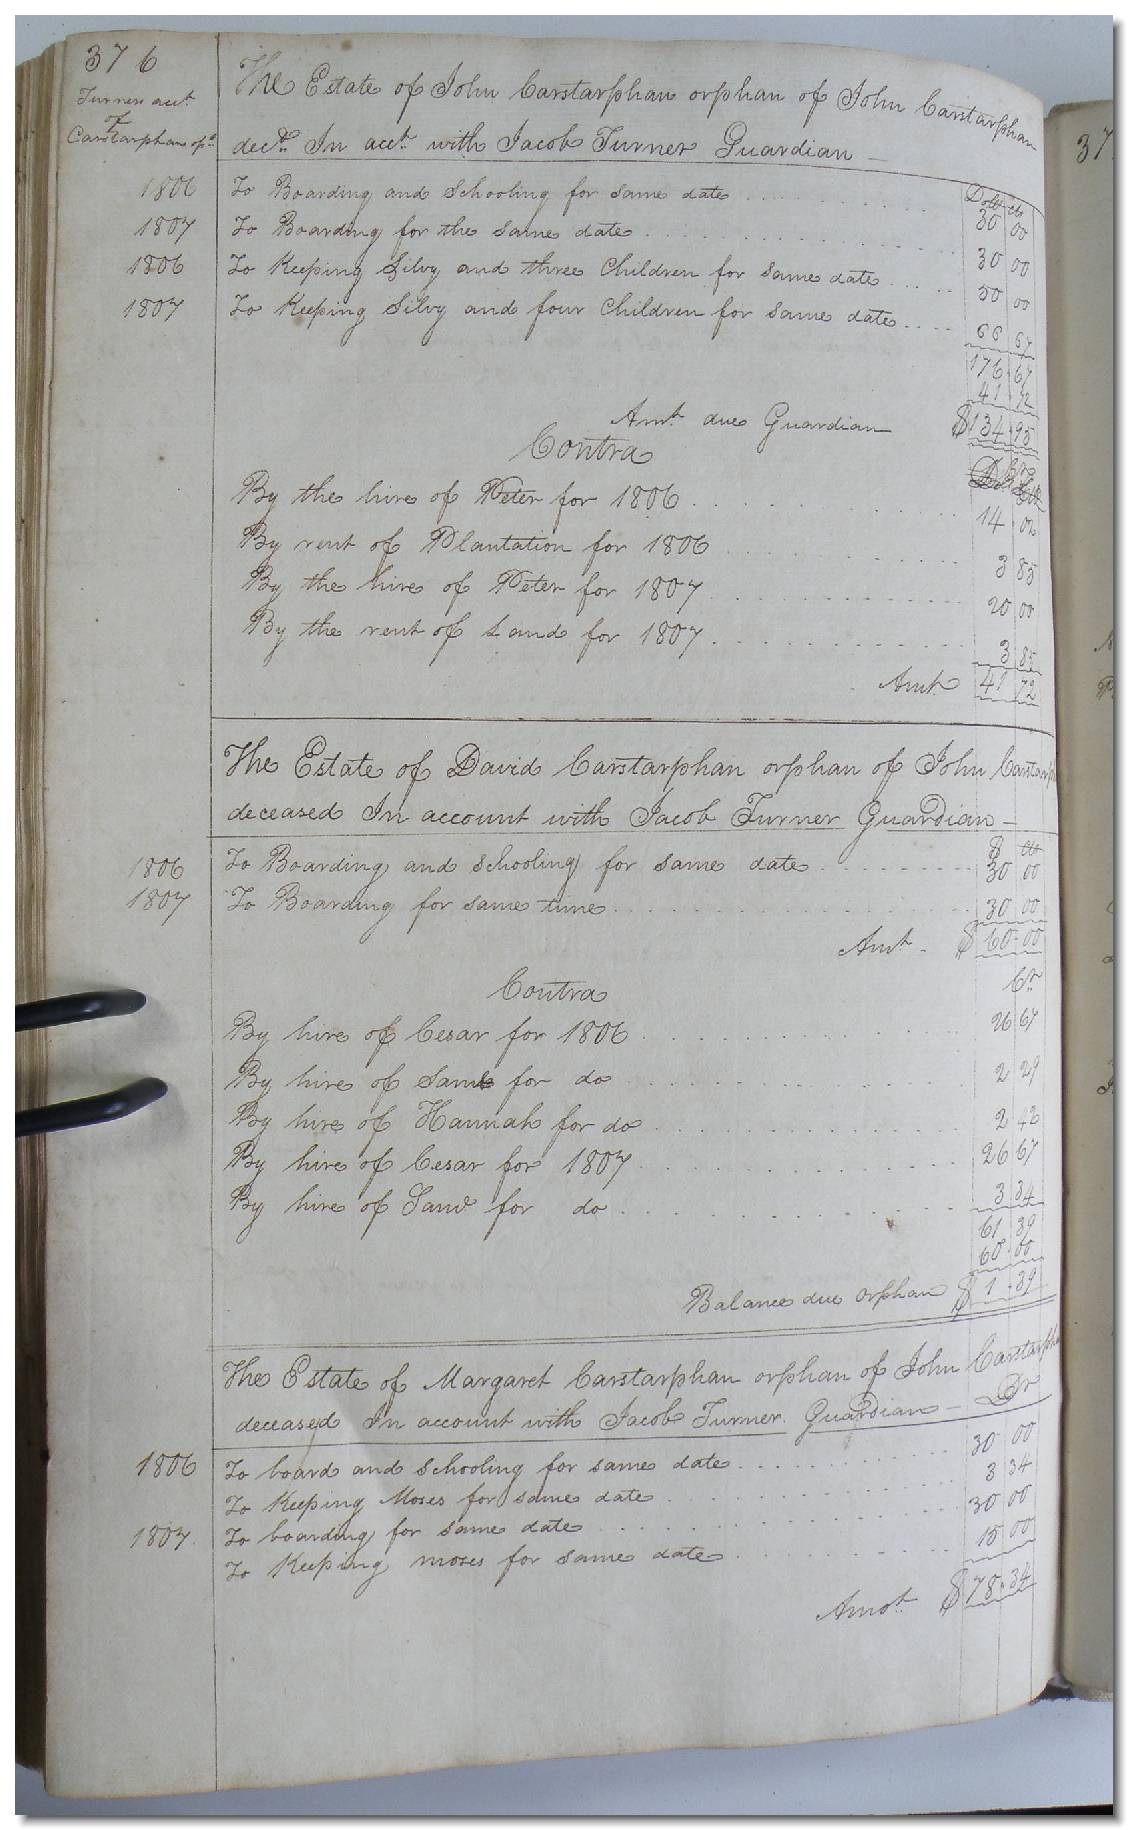 376
Turners acct
of
Carstarphan op.s
The Estate of John Carstarphan orphan of John Carstarphan
decd. In acct. with Jacob Turner Guardian —
Dolls cts
1806 To Boarding and Schooling for same date 30 00
1807 To Boarding for the same date 30 00
1806 To Keeping Silvy and three Children for same date 50 00
1807 To Keeping Silvy and four Children for same date 66 67
176.67
41 72
Amt. due Guardian $134.95
Contra
By the hire of Peter for 1806 14.02
By rent of Plantation for 1806 3 85
By the hire of Peter for 1807 20 00
By the rent of Land for 1807 3 85
Amt. 41 72
The Estate of David Carstarphan orphan of John Carstarph
deceased In account with Jacob Turner Guardian —
$ cts
1806 To Boarding and Schooling for same date 30 00
1807 To Boarding for same time 30 00
Amt. $60.00
Contra Cr
By hire of Cesar for 1806 26 67
By hire of Sam for do 2 29
By hire of Hannah for do 2 42
By hire of Cesar for 1807 26 67
By hire of Sam for do 3 34
61 39
60.00
Balance due orphan $1.39
The Estate of Margaret Carstarphan orphan of John Carstarpha
deceased In account with Jacob Turner. Guardian — Dr
1806 To board and Schooling for same date 30 00
To Keeping Moses for same date 3 34
1807. To boarding for same date 30 00
To Keeping moses for same date 15 00
Amot. $78.34
37